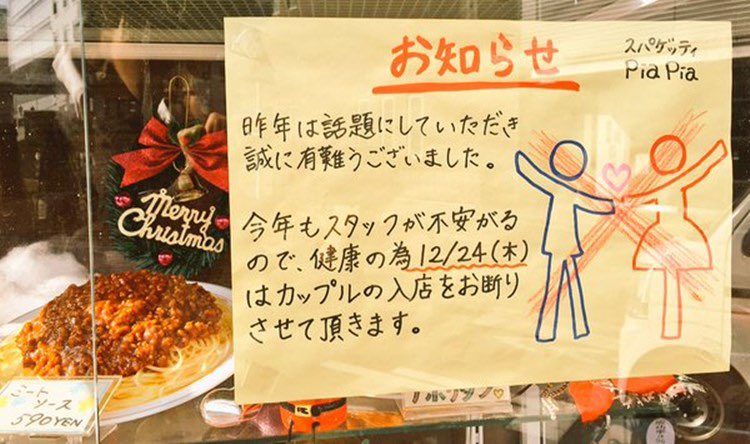 お知らせ
スパゲッティ
Pia Pia
昨年は話題にしていただき
誠に有難うございました。
今年もスタッフが不安がる
ので、健康の為12/24(木)
はカップルの入店をお断り
させて頂きます。
Merry
Christmas
ミート
ソース
590YEN